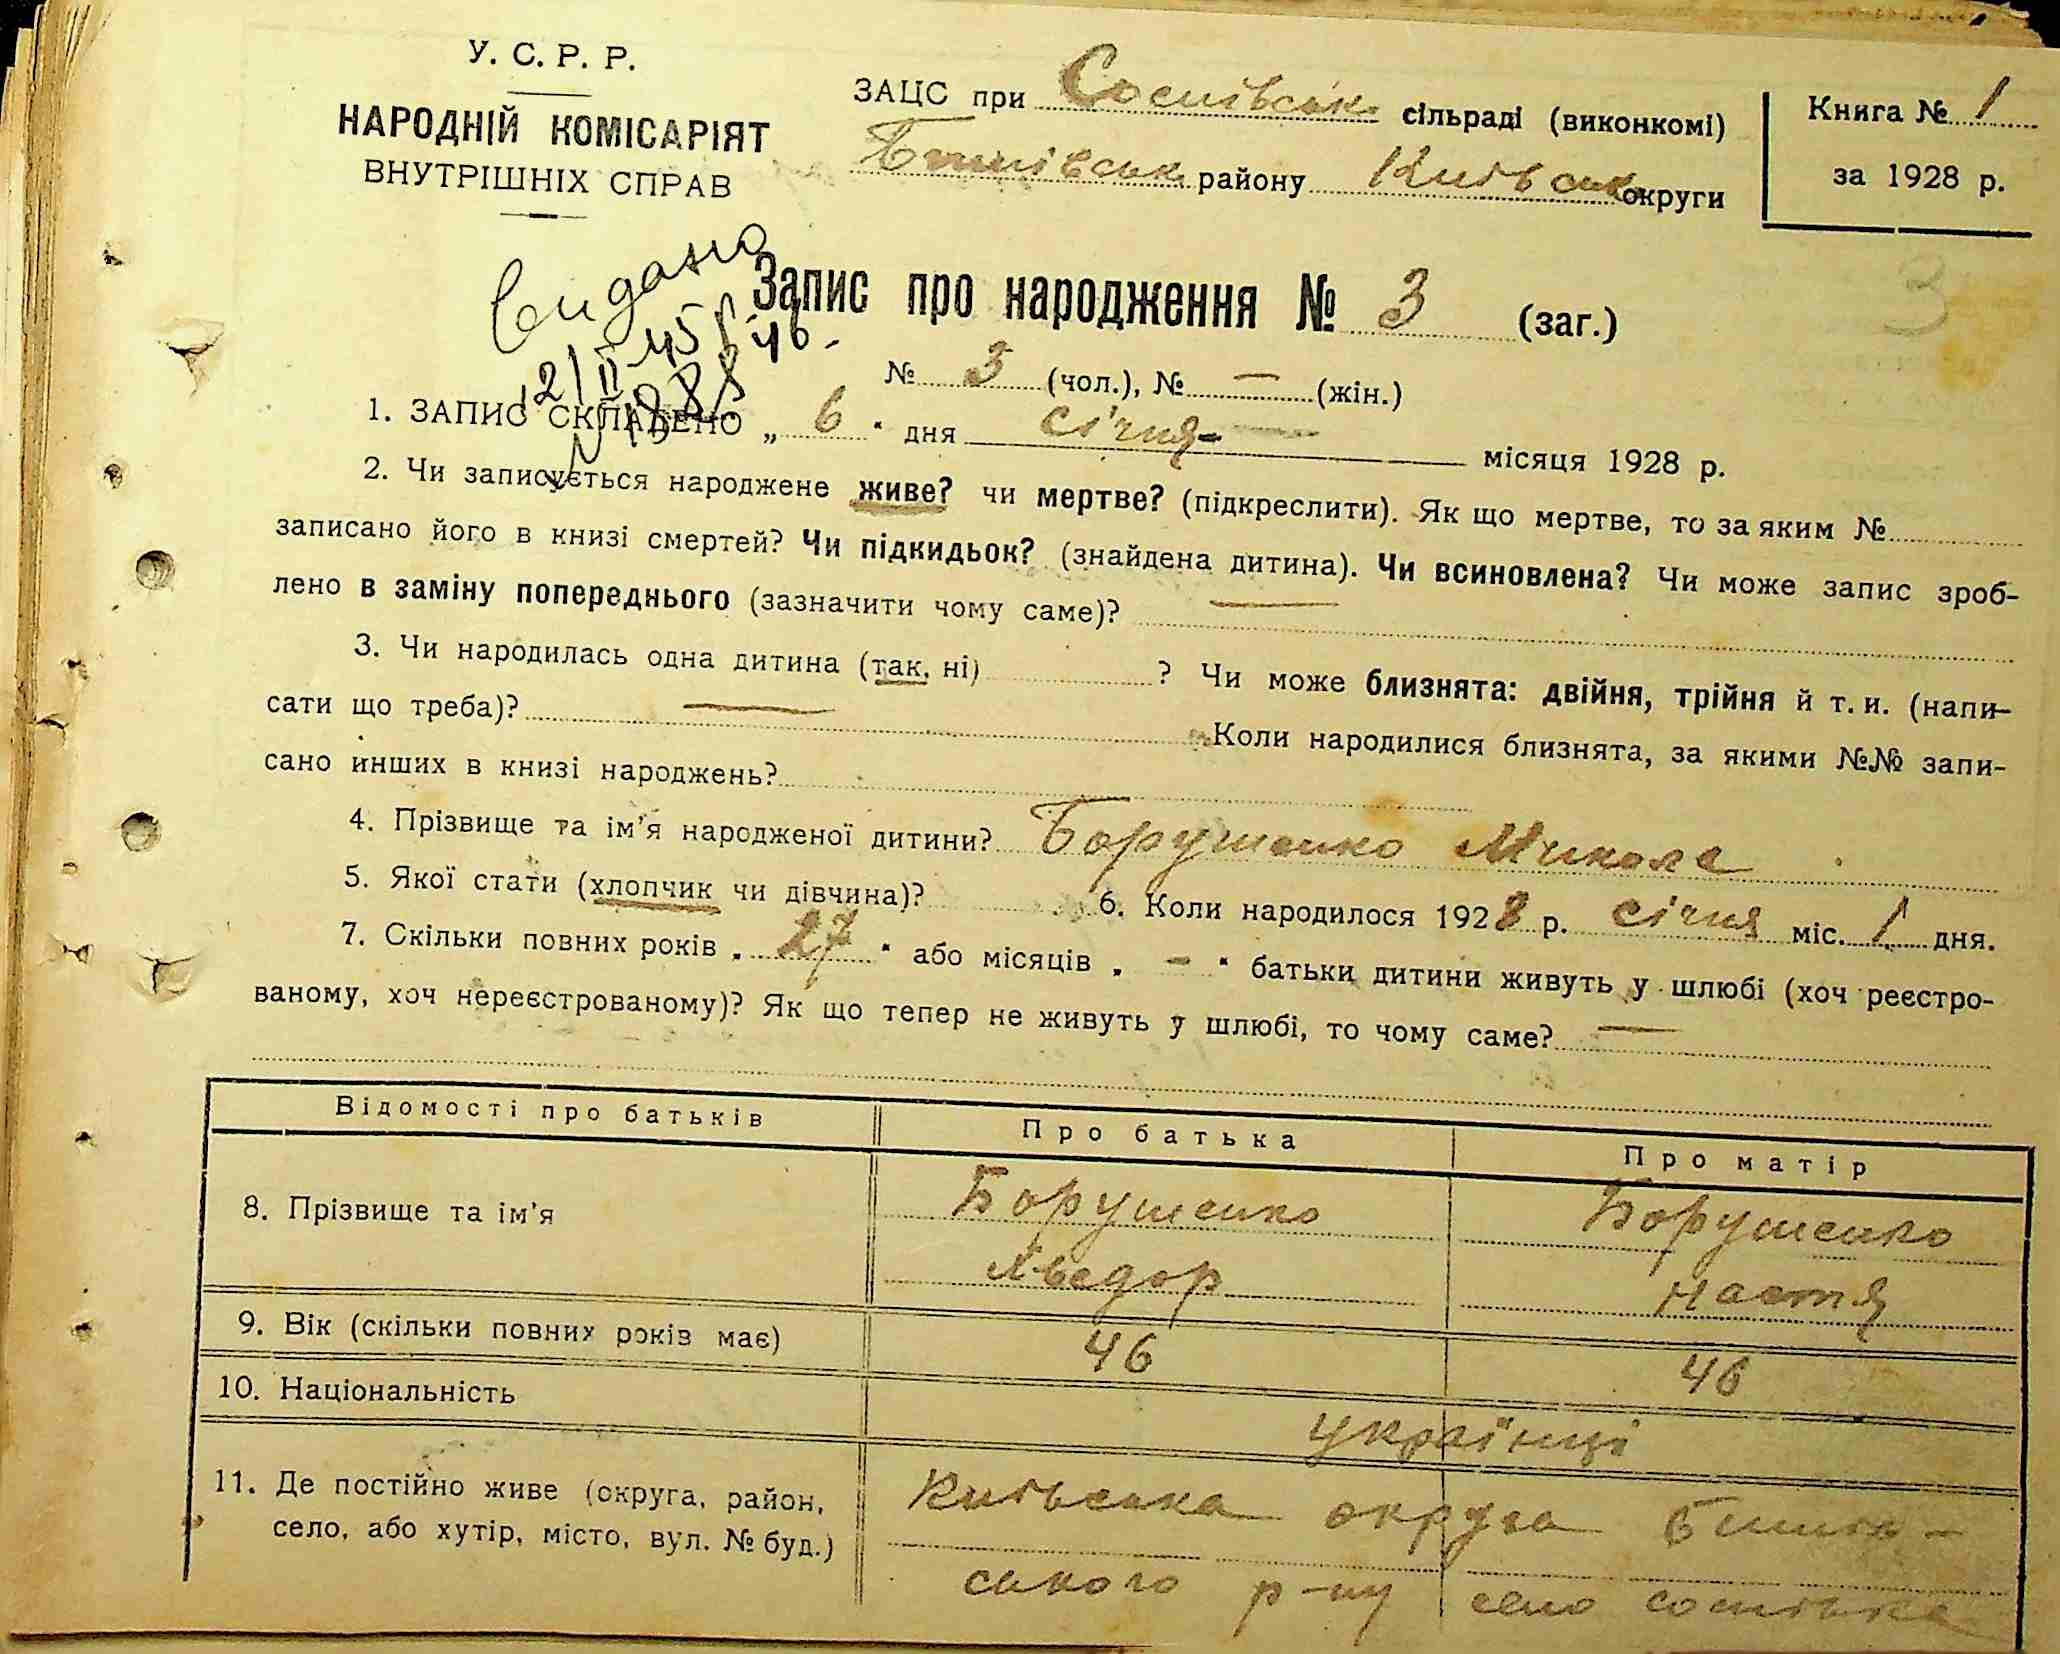 У. С. Р. Р.
НАРОДНІЙ КОМІСАРІЯТ
ВНУТРІШНІХ СПРАВ
ЗАЦС при Соснівськ. сільраді (виконкомі)
Бишівськ. району Київськ. округи
Книга № 1
за 1928 р.
видано
12/II 45 р.
Запис про народження № 3 (заг.)
3
№ 3 (чол.), № — (жін.)
1. ЗАПИС СКЛАДЕНО „ 6 “ дня січня місяця 1928 р.
2. Чи записується народжене живе? чи мертве? (підкреслити). Як що мертве, то за яким №
записано його в книзі смертей? Чи підкидьок? (знайдена дитина). Чи всиновлена? Чи може запис зроб-
лено в заміну попереднього (зазначити чому саме)? —
3. Чи народилась одна дитина (так, ні) ? Чи може близнята: двійня, трійня й т. и. (напи-
сати що треба)? — Коли народилися близнята, за якими №№ запи-
сано инших в книзі народжень?
4. Прізвище та ім'я народженої дитини? Борушенко Микола
5. Якої стати (хлопчик чи дівчина)? 6. Коли народилося 1928 р. січня міс. 1 дня.
7. Скільки повних років „ 27 “ або місяців „ - “ батьки дитини живуть у шлюбі (хоч реєстро-
ваному, хоч нереєстрованому)? Як що тепер не живуть у шлюбі, то чому саме? —
Відомості про батьків Про батька Про матір
8. Прізвище та ім'я Борушенко Борушенко
Хведор Настя
9. Вік (скільки повних років має) 46 46
10. Національність українці
11. Де постійно живе (округа, район, Київська округа Бишів-
село, або хутір, місто, вул. № буд.) ського р-ну село Соснівка